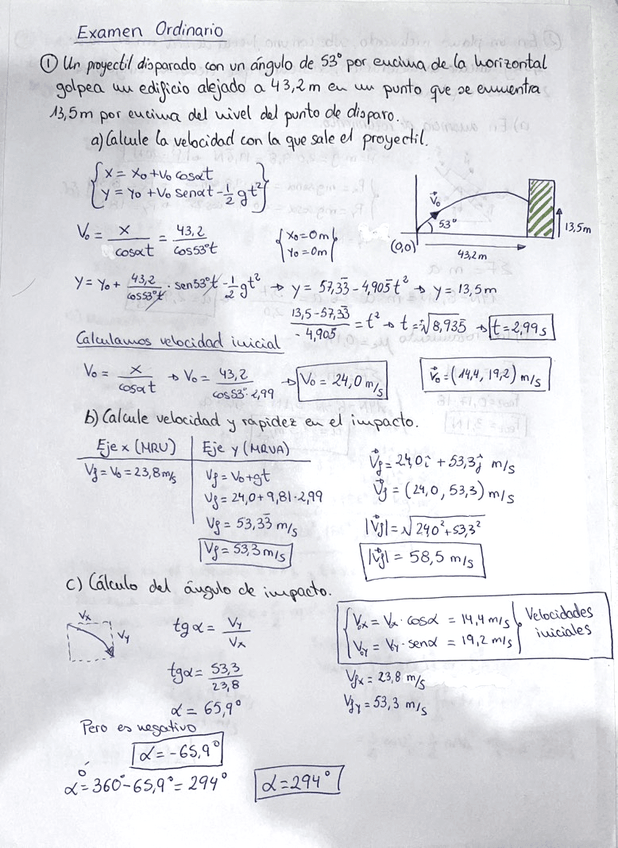 Examen Ordinario
① Un proyectil disparado con un ángulo de 53° por encima de la horizontal
golpea un edificio alejado a 43,2 m en un punto que se encuentra
13,5m por encima del nivel del punto de disparo.
a) Calcule la velocidad con la que sale el proyectil.
{ x = x₀ + V₀ cosαt
y = y₀ + V₀ senαt - 1/2 gt² }
V₀ = x/cosαt = 43,2/cos53°t
{ x₀ = 0m
y₀ = 0m }
V⃗₀
53°
(0,0)
43,2m
13,5m
y = y₀ + 43,2/cos53°t · sen53°t - 1/2 gt² → y = 57,33 - 4,905t² → y = 13,5m
13,5-57,33/-4,905 = t² → t = √8,935 → t = 2,99s
Calculamos velocidad inicial
V₀ = x/cosαt → V₀ = 43,2/cos53°·2,99 → V₀ = 24,0 m/s
V⃗₀ = (14,4, 19,2) m/s
b) Calcule velocidad y rápidez en el impacto.
Eje x (MRU) Eje y (MRVA)
Vf = V₀ = 23,8 m/s
Vf = V₀ + gt
Vf = 24,0 + 9,81·2,99
Vf = 53,33 m/s
Vf = 53,3 m/s
V⃗f = 24,0î + 53,3ĵ m/s
V⃗f = (24,0, 53,3) m/s
|V⃗f| = √24,0² + 53,3²
|V⃗f| = 58,5 m/s
c) Cálculo del ángulo de impacto.
Vx
Vy
tgα = Vy/Vx
tgα = 53,3/23,8
α = 65,9°
{ Vₓ = Vₓ · cosα = 14,4 m/s
V₀y = Vy · senα = 19,2 m/s } Velocidades
iniciales
Vfx = 23,8 m/s
Vfy = 53,3 m/s
Pero es negativo
α = -65,9°
ó
α = 360° - 65,9° = 294° α = 294°